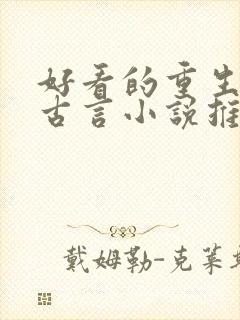 好看的重生
古言小説推
戴姆勒-克莱